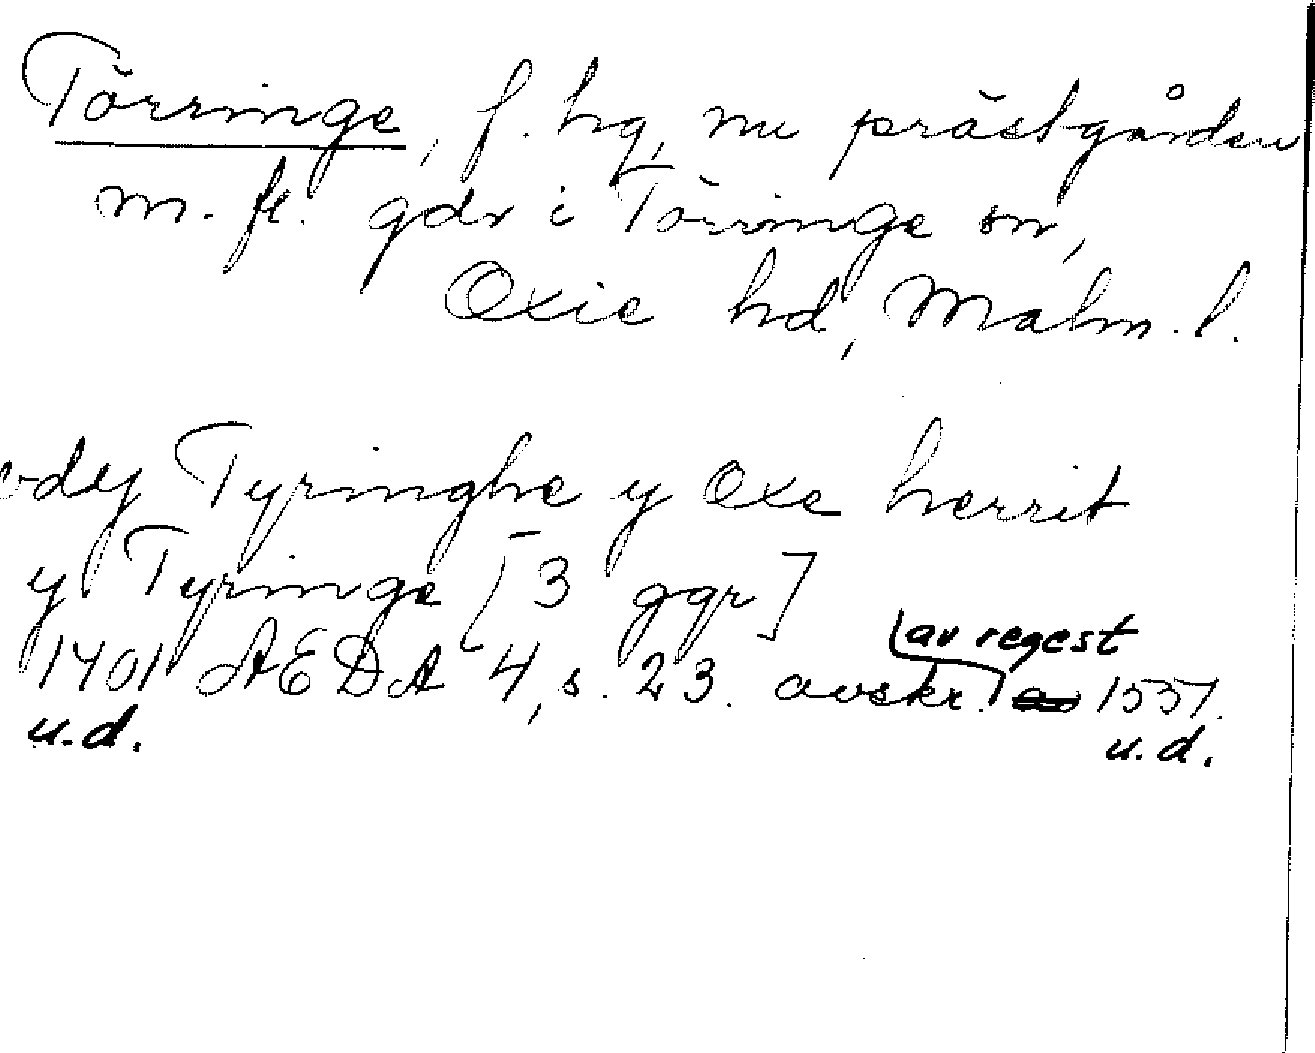 Törringe, f. hg, nu prästgården
m. fl. gdr i Törringe sn,
Oxie hd, Malm. l.
Tyringhe y Oxe herrit
y Tyringe [3 ggr]
av regest
1401 AEDA 4, s. 23. avskr. 1551.
u.d. u.d.